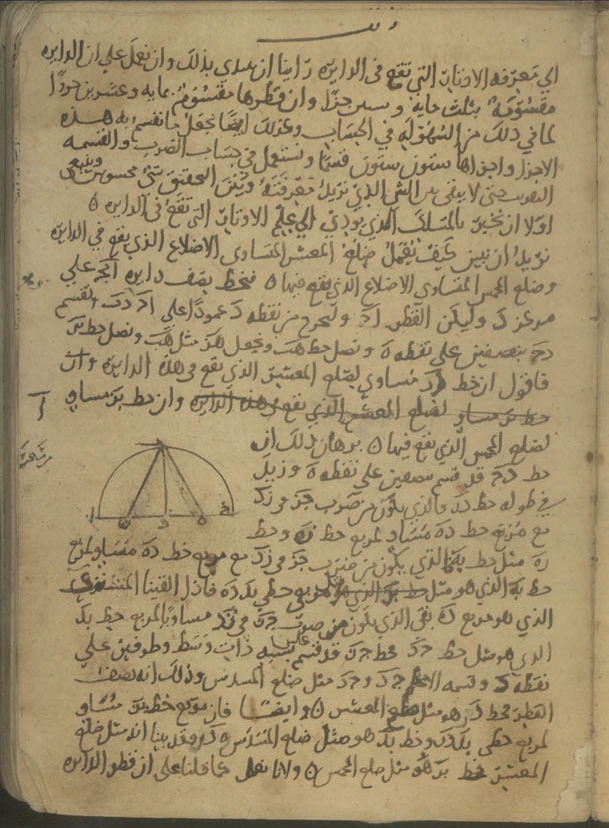 الي معرفه الاوتار التي تقع في الدايره راينا ان نبتدي بذلك وان نعمل علي ان الدايره
مقسومه بثلث مايه وستين جزا وان قطرها مقسوم بمايه وعشرين جزوا
لما في ذلك من السهوله في الحساب وكذلك ايضا نجعل ما نقسم به هذه
الاجزا واجزاها ستون ستون قسما ونستعمل في حساب الضرب والقسمه
التقريب حتي لا يبقي من الشي الذي نريد معرفته وبين التحقيق شي محسوس وينبغي
اولا ان نخبر بالمسلك الذي يودي الي علم الاوتار التي تقع في الدايره ٥
نريد ان نبين كيف نعمل ضلع المعشر المتساوي الاضلاع الذي يقع في الدايره
وضلع المخمس المتساوي الاضلاع الذي يقع فيها ٥ فنخط نصف دايره ابج علي
مركز د وليكن القطر اج ونخرج من نقطه د عمودا علي اج دب ونقسم
دج بنصفين علي نقطه ه ونصل خط هب ونجعل هز مثل هب ونصل خط بز
فاقول ان خط زد مساوي لضلع المعشر الذي يقع في هذه الدايره وان
خط بز مساو لضلع المعشر الذي يقع في هذه الدايره وان خط بز مساو
لضلع المخمس الذي يقع فيها ٥ برهان ذلك ان
خط دج قد قسم بنصفين علي نقطه ه وزيد
في طوله خط دز والذي يكون من ضرب جز في زد
مع مربع خط ده مساو لمربع خط زه وخط
زه مثل خط به فالذي يكون من ضرب جز في زد مع مربع خط ده مساو لمربع
خط به الذي هو مثل مربعي خطي بد ده فاذا القينا المشترك
الذي هو مربع ده بقي الذي يكون من ضرب جز في زد مساويا لمربع خط بد
الذي هو مثل خط جد فخط جز قد قسم علي نسبه ذات وسط وطرفين علي
نقطه د وقسمه الاعظم جد وجد مثل ضلع المسدس وذلك انه نصف
القطر فخط دز هو مثل ضلع المعشر ٥ وايضا فان مربع خط بز مساو
لمربع خطي بد دز وخط بد هو مثل ضلع المسدس ودز قد بينا انه مثل ضلع
المعشر فخط بز هو مثل ضلع المخمس ٥ ولانا نعمل كما قلنا علي ان قطر الدايره